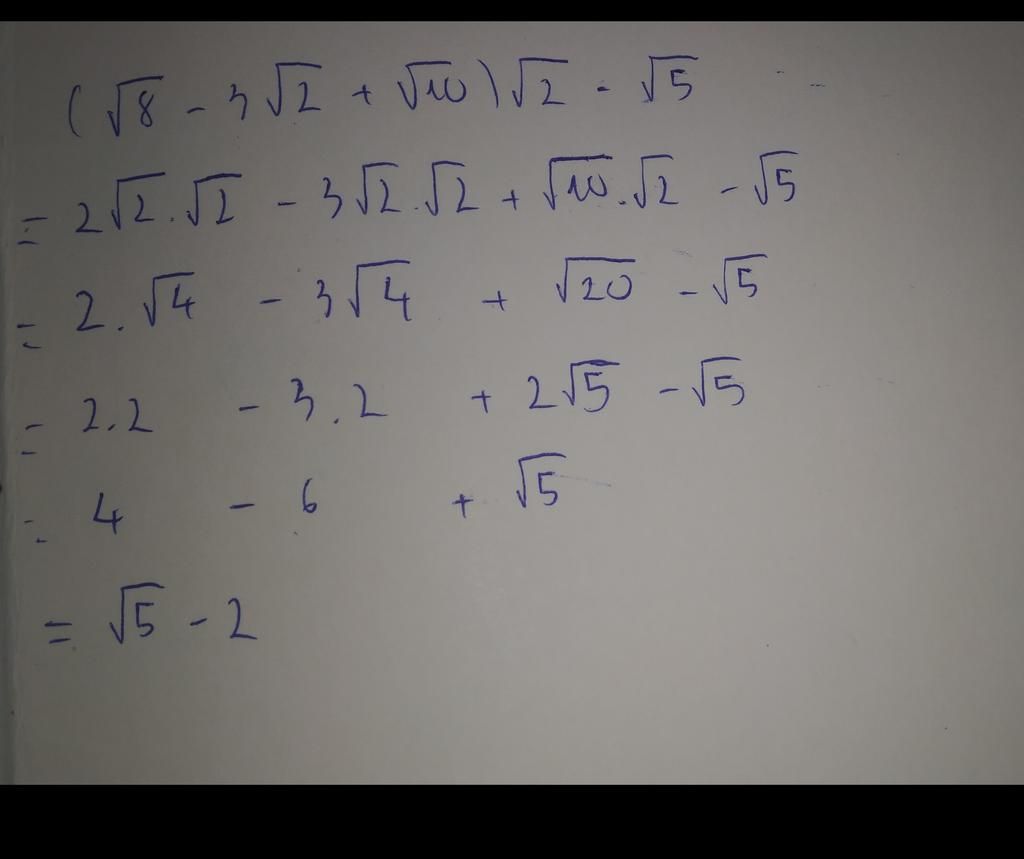 (√8 - 3√2 + √10)√2 - √5
= 2√2.√2 - 3√2.√2 + √10.√2 - √5
= 2.√4 - 3√4 + √20 - √5
= 2.2 - 3.2 + 2√5 - √5
= 4 - 6 + √5
= √5 - 2